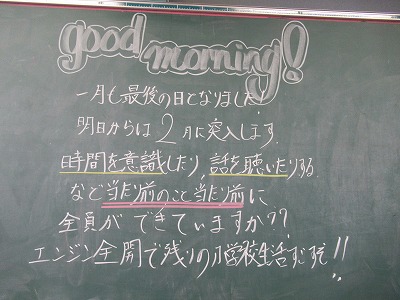 good morning!
一月も最後の日となりました。
明日からは2月に突入します。
時間を意識したり、話を聴いたりする
など当たり前のこと当たり前に
全員ができていますか??
エンジン全開で残りの小学校生活すごすぞ!!